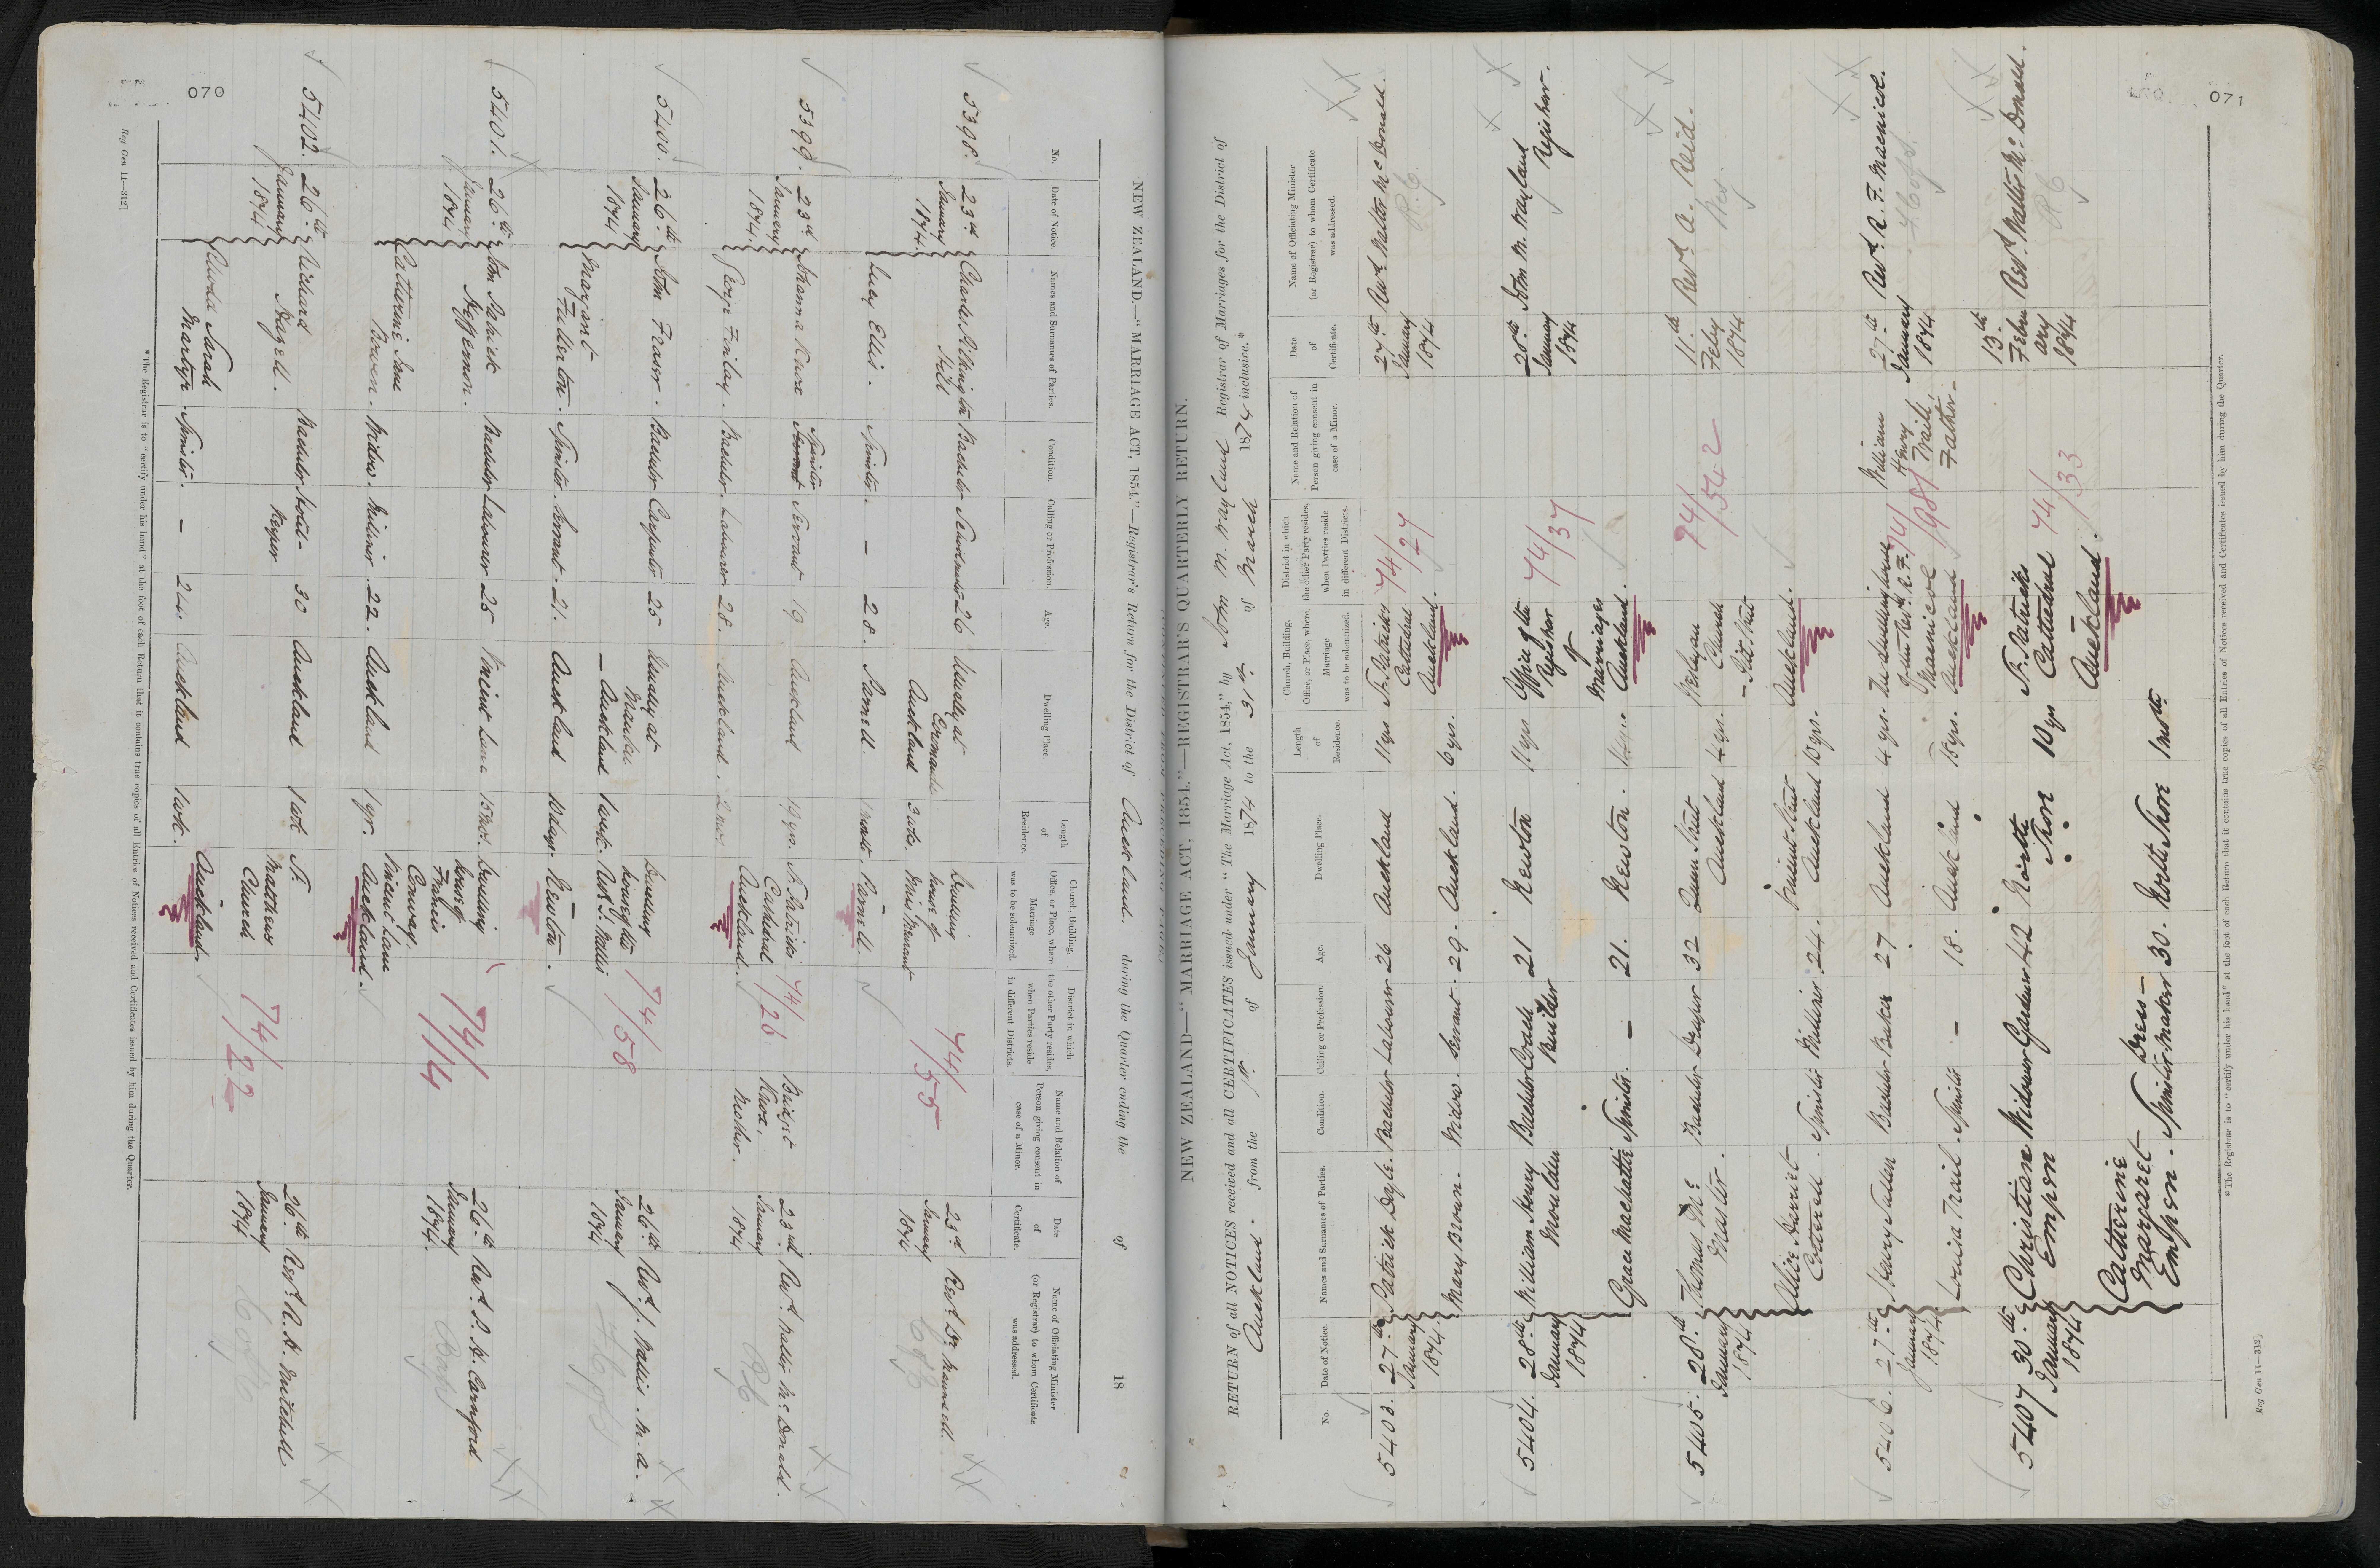 070
NEW ZEALAND.—"MARRIAGE ACT, 1854."—Registrar's Return for the District of Auckland. during the Quarter ending the of 18
No.
Date of Notice.
Names and Surnames of Parties.
Condition.
Calling or Profession.
Age.
Dwelling Place.
Length of Residence.
Church, Building, Office, or Place, where Marriage was to be solemnized.
District in which the other Party resides, when Parties reside in different Districts.
Name and Relation of Person giving consent in case of a Minor.
Date of Certificate.
Name of Officiating Minister (or Registrar) to whom Certificate was addressed.
5398.
23rd January 1874.
Charles
Hill
Bachelor
26
Usually at
Auckland
3 wks.
Dwelling house of
74/55
23rd January 1874
Revd. Dr. Maunsell.
C of E
Lucy Ellis.
Spinster.
—
28.
Parnell.
Parnell.
5399.
23rd January 1874.
Johanna
Spinster
Servant
19
Auckland
19 yrs.
St. Patricks Cathedral Auckland.
74/26
Bridget
Mother.
23rd January 1874
Revd. Walter McDonald.
RC
George Finlay.
Bachelor
Labourer
28.
Auckland.
2 mos.
5400.
26th January 1874
John Fraser.
Bachelor
Carpenter
25
Usually at
— Auckland
1 week.
Dwelling house of the Revd. J. Wallis
Newton.
74/58
26th January 1874
Revd. J. Wallis. M.A.
Margaret Fullerton.
Spinster.
Servant.
21.
Auckland
10 days.
5401.
26th January 1874
John Patrick Heffernon.
Bachelor
Labourer
25
Vincent Lane
15 mos.
Dwelling house of Francis Conway. Vincent Lane Auckland.
74/14
26th January 1874.
Revd. P. H. Cornford
Bapt
Catherine Jane Bowen.
Widow.
Milliner
22.
Auckland
1 yr.
5402.
26th January 1874
Richard
Bachelor
Hotel-Keeper
30
Auckland
1 wk
St. Matthews Church Auckland.
74/22
26th January 1874
Revd. R. H. Mitchell
C of E
Sarah
Spinster.
—
24.
Auckland
1 wk.
*The Registrar is to "certify under his hand" at the foot of each Return that it contains true copies of all Entries of Notices received and Certificates issued by him during the Quarter.
Reg Gen 11—312]
071
NEW ZEALAND—"MARRIAGE ACT, 1854."—REGISTRAR'S QUARTERLY RETURN.
RETURN of all NOTICES received and all CERTIFICATES issued under "The Marriage Act, 1854," by John M. Wayland Registrar of Marriages for the District of
Auckland. from the 1st of January 1874 to the 31st of March 1874 inclusive.*
No.
Date of Notice.
Names and Surnames of Parties.
Condition.
Calling or Profession.
Age.
Dwelling Place.
Length of Residence.
Church, Building, Office, or Place, where Marriage was to be solemnized.
District in which the other Party resides, when Parties reside in different Districts.
Name and Relation of Person giving consent in case of a Minor.
Date of Certificate.
Name of Officiating Minister (or Registrar) to whom Certificate was addressed.
5403.
27th January 1874.
Patrick Doyle.
Bachelor
Labourer
26
Auckland
11 yrs
St. Patricks Cathedral Auckland.
74/27
27th January 1874
Revd. Walter McDonald.
R.C.
Mary Brown.
Widow.
Servant.
29.
Auckland.
6 yrs.
5404.
28th January 1874
William Henry Moulden
Bachelor
Coach Builder
21
Newton
11 yrs
Office of the Registrar of Marriages Auckland.
74/37
28th January 1874
John M. Wayland Registrar.
Grace Machattie
Spinster.
—
21.
Newton.
5405.
28th January 1874
Thomas McMaster.
Bachelor
Draper
32
Queen Street Auckland
4 yrs.
Wesleyan Church
— Pitt Street
Auckland.
74/542
11th Feby 1874
Revd. A. Reid.
Wes.
Alice Harriet Cotterell.
Spinster
Milliner
24.
Vincent Street Auckland
10 yrs.
5406.
27th January 1874
Henry
Bachelor
Baker
27
Auckland
4 yrs.
The dwelling house of the Revd. R. F. Macnicol Auckland
74/981
William Henry Trail. Father.
27th January 1874.
Revd. R. F. Macnicol.
Louisa Trail.
Spinster
—
18.
Auckland
18 yrs.
5407
30th January 1874
Christian Empen
Widower
Gardener
42
North Shore
10 yrs
St. Patricks Cathedral Auckland.
74/33
13th February 1874
Revd. Walter McDonald.
RC
Catherine Margaret Empen.
Spinster.
Dress-maker
30.
North Shore
1 mth
*The Registrar is to "certify under his hand" at the foot of each Return that it contains true copies of all Entries of Notices received and Certificates issued by him during the Quarter.
Reg Gen 11—312]